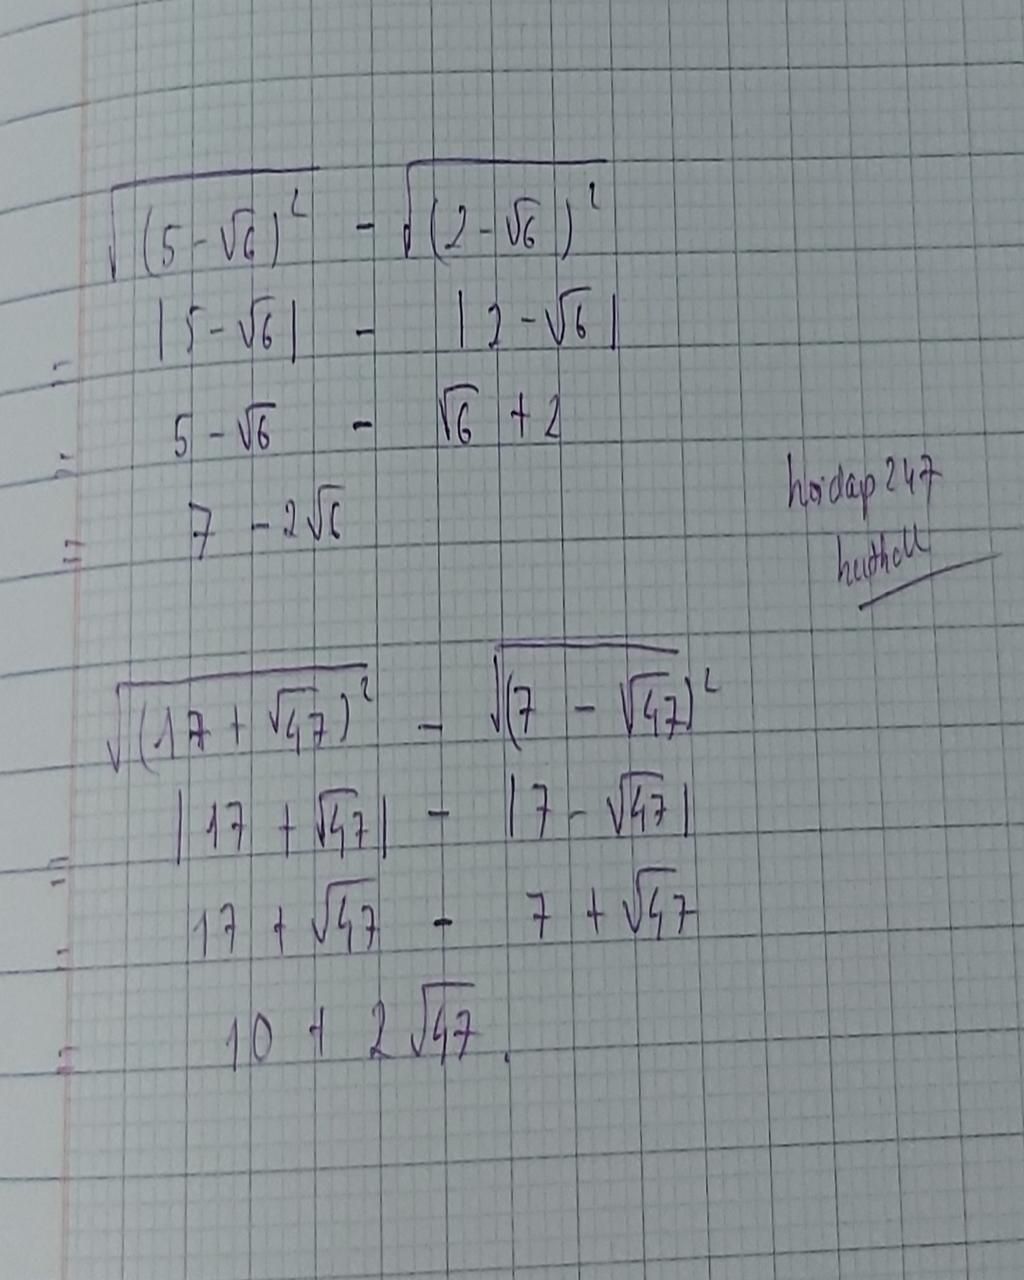 √(5-√6)² - √(2-√6)²
= |5-√6| - |2-√6|
= 5-√6 - √6 + 2
= 7 - 2√6
hoidap247
√(17 + √47)² - √(7 - √47)²
= |17 + √47| - |7 - √47|
= 17 + √47 - 7 + √47
= 10 + 2√47.